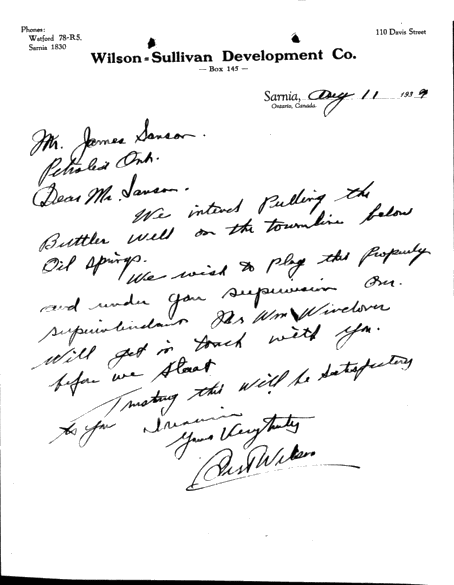 Phones:
Watford 78-R5.
Sarnia 1830
110 Davis Street
Wilson-Sullivan Development Co.
— Box 145 —
Sarnia, Aug 11 1939
Ontario, Canada.
Mr. James Sanson.
Petrolea Ont.
Dear Mr. Sanson.
We intend Pulling the
Buttler well on the townline below
Oil Springs.
We wish to plug this Properly
and under your supervision Our.
superintendant Mr Wm
Will get in touch with you.
before we start
Trusting this will be Satisfactory
to you I remain
Yours Very truly
Wilson